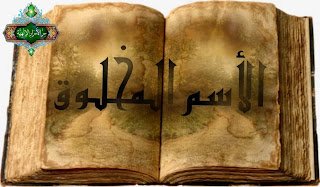 الأسم المخلوق